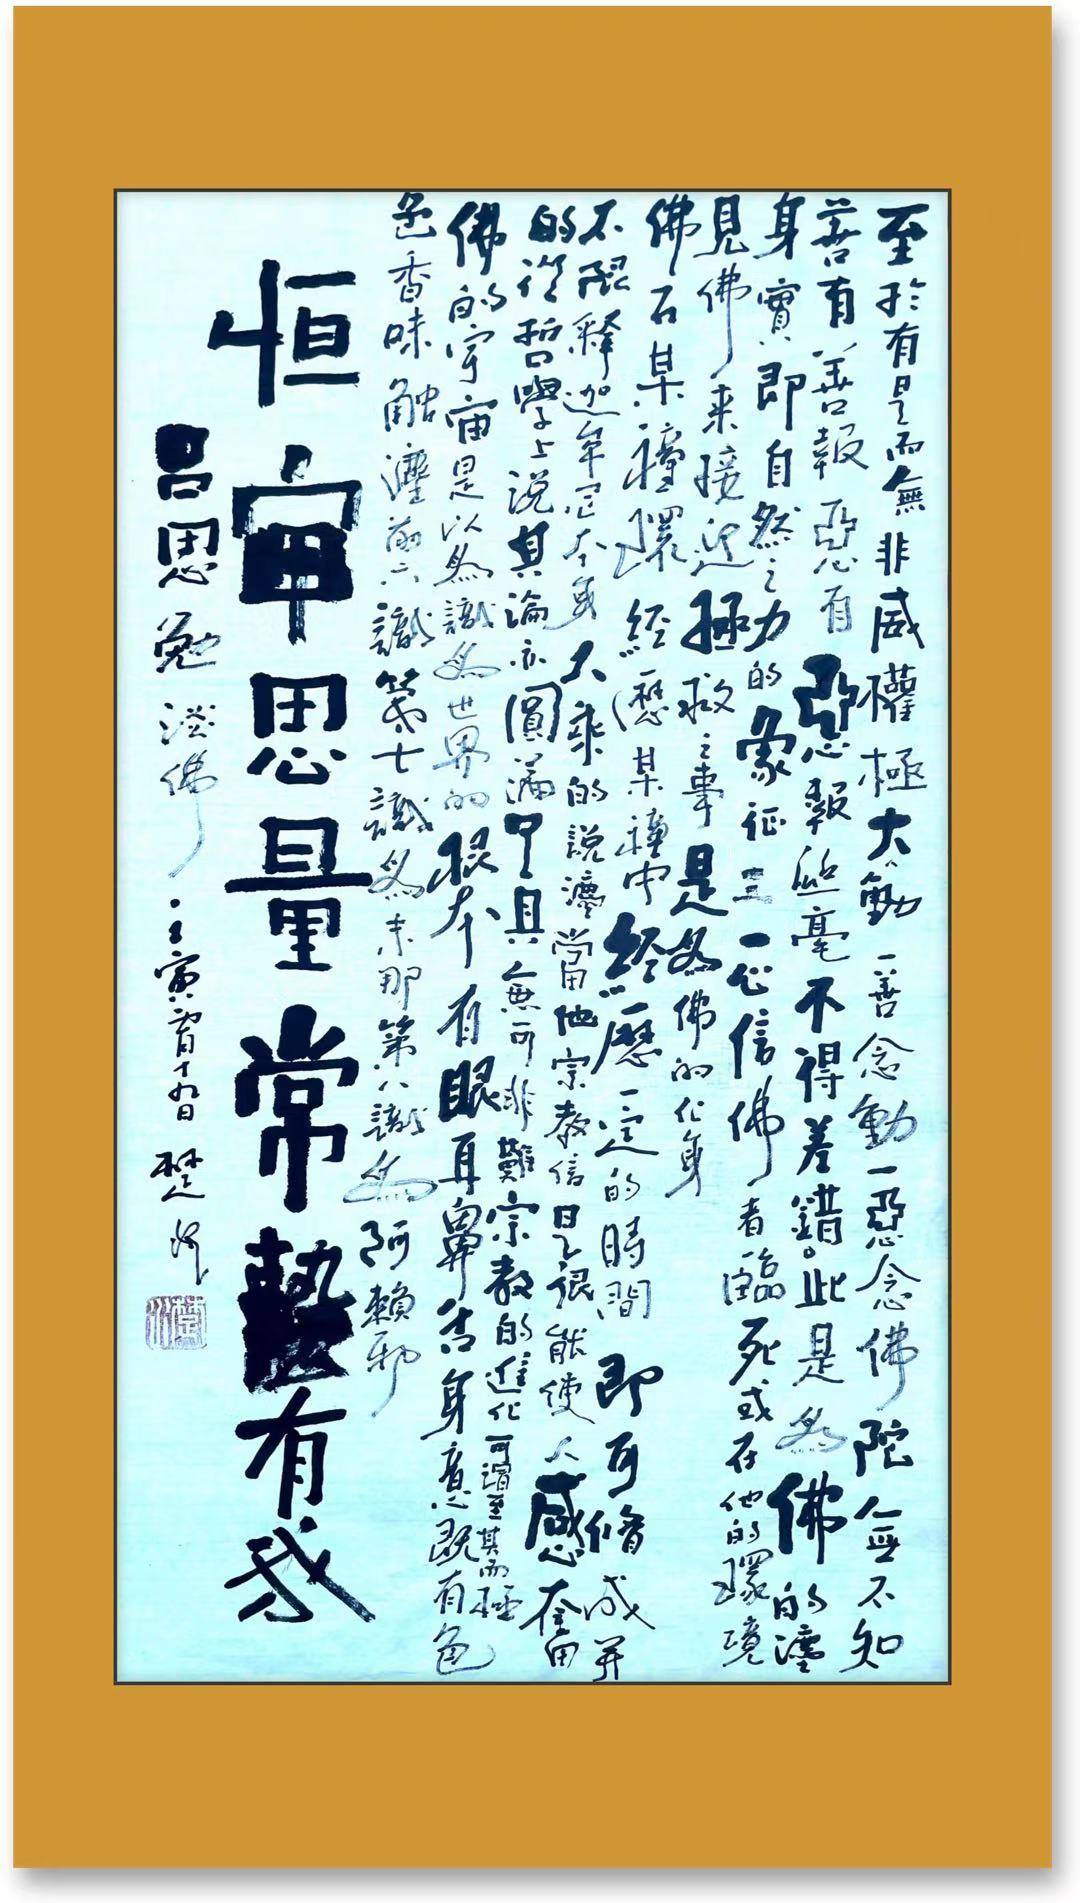 至於有是而無非威權極大動一善念動一惡念佛陀無不知
善有善報惡有惡報絲毫不得差錯。此是為佛的灋
身實即自然之力的象征三一心信佛者臨死或在他的環境
見佛來接近極救之事是為佛的化身
佛在某種環經歷某種中經歷一定的時間即可修成并
不限釋迦牟尼本身大乘的說灋當他宗教信是很能使人感奮由
的從哲學上說其論亦圓滿具無可非難宗教的進化可謂至其而極
佛的宇宙是以為識為世界的根本有眼耳鼻舌身意既有色
色香味觸灋前六識第七識為末那第八識為阿賴邪
恒審思量常執有我
呂思勉談佛 壬寅宵十九日 楚河